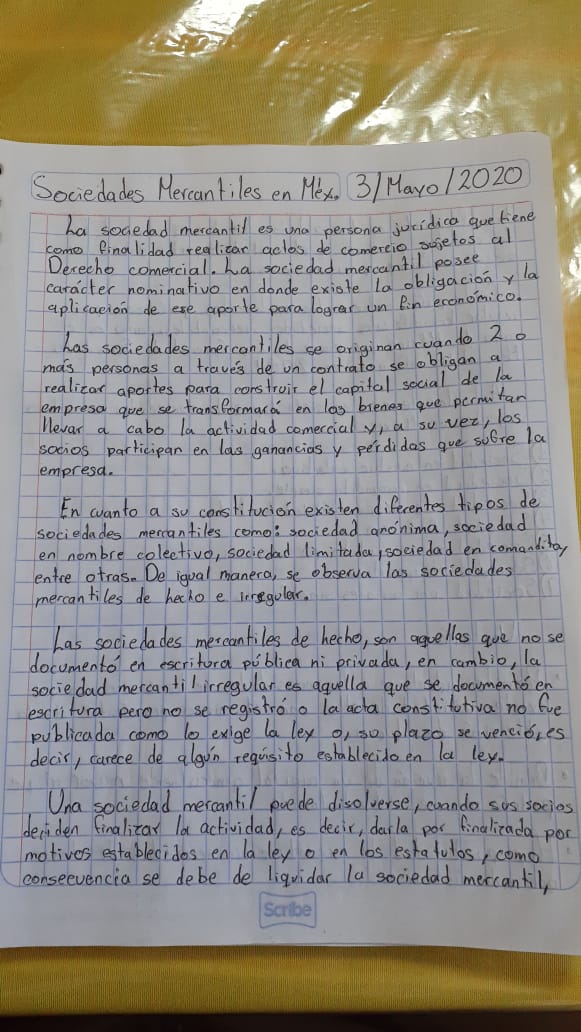 Sociedades Mercantiles en Méx. 3/Mayo/2020
La sociedad mercantil es una persona jurídica que tiene
como finalidad realizar actos de comercio sujetos al
Derecho comercial. La sociedad mercantil posee
carácter nominativo en donde existe la obligación y la
aplicación de ese aporte para lograr un fin económico.
Las sociedades mercantiles se originan cuando 2 o
más personas a través de un contrato se obligan a
realizar aportes para construir el capital social de la
empresa que se transformará en los bienes que permitan
llevar a cabo la actividad comercial y, a su vez, los
socios participan en las ganancias y pérdidas que sufre la
empresa.
En cuanto a su constitución existen diferentes tipos de
sociedades mercantiles como: sociedad anónima, sociedad
en nombre colectivo, sociedad limitada, sociedad en comandita,
entre otras. De igual manera, se observa las sociedades
mercantiles de hecho e irregular.
Las sociedades mercantiles de hecho, son aquellas que no se
documentó en escritura pública ni privada, en cambio, la
sociedad mercantil irregular es aquella que se documentó en
escritura pero no se registró o la acta constitutiva no fue
publicada como lo exige la ley o, su plazo se venció, es
decir, carece de algún requisito establecido en la ley.
Una sociedad mercantil puede disolverse, cuando sus socios
deciden finalizar la actividad, es decir, darla por finalizada por
motivos establecidos en la ley o en los estatutos, como
consecuencia se debe de liquidar la sociedad mercantil,
Scribe